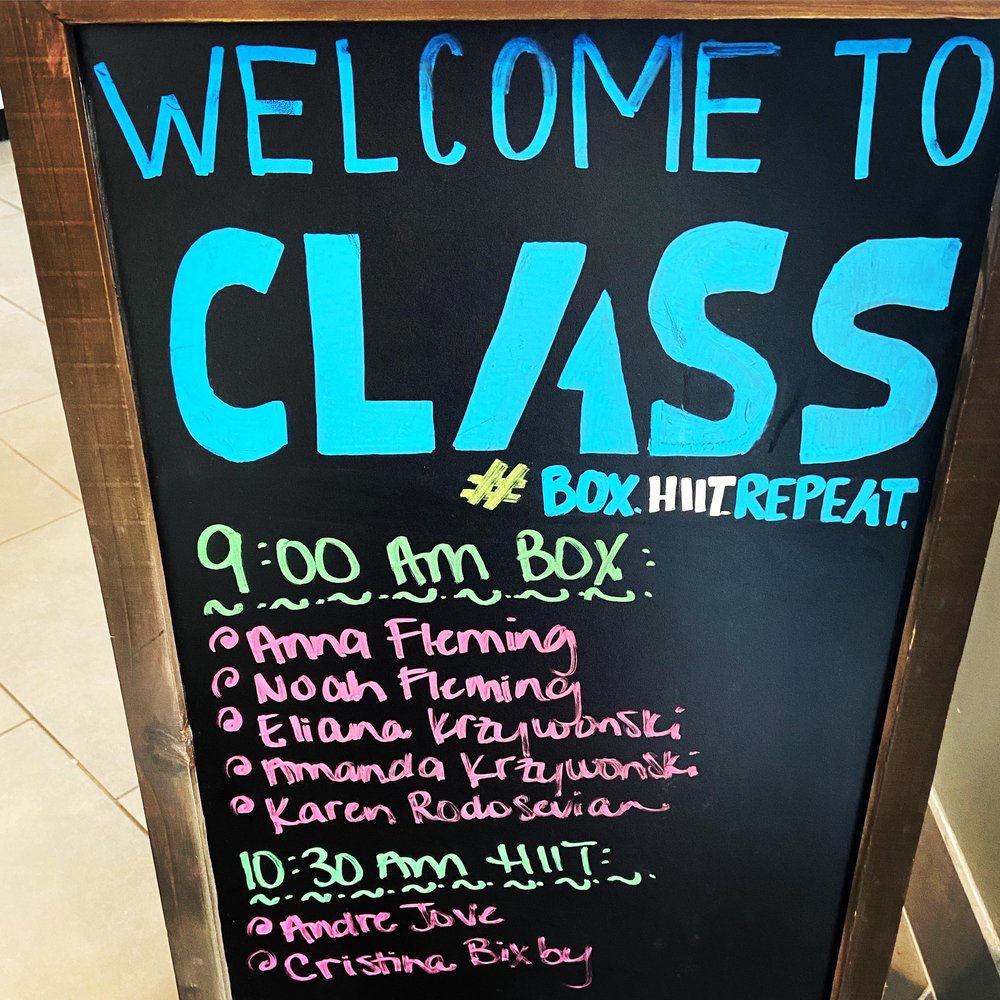 WELCOME TO
CLASS
# BOX. HIIT REPEAT.
9:00 AM BOX:
Anna Fleming
Noah Fleming
Eliana Krzywonski
Amanda Krzywonski
Karen Rodosevian
10:30 AM HIIT:
Andre Jove
Cristina Bixby